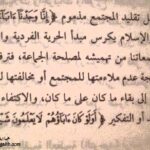 ـل تقليد المجتمع مذموم ﴿إِنَّا وَجَدْنَا
الإسلام يكرس مبدأ الحرية الفردية و
معاتنا من تهميشه لمصلحة الجماعة، فتر
جة عدم ملاءمتها للمجتمع أو مخالفتها ل
إلى بقاء ما كان على ما كان، والاكتفاء
أو التفكير ﴿أَوَلَوْ كَانَ آبَاؤُهُمْ لَا يَعْلَمُونَ شَيْـ